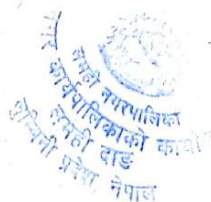 लमही नगरपालिका
नगर कार्यपालिकाको कार्या
लमही दाङ
लुम्बिनी प्रदेश, नेपाल